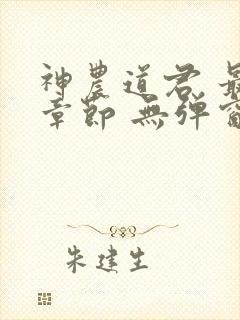 神農道君 最
章節 無弹窗
朱建生